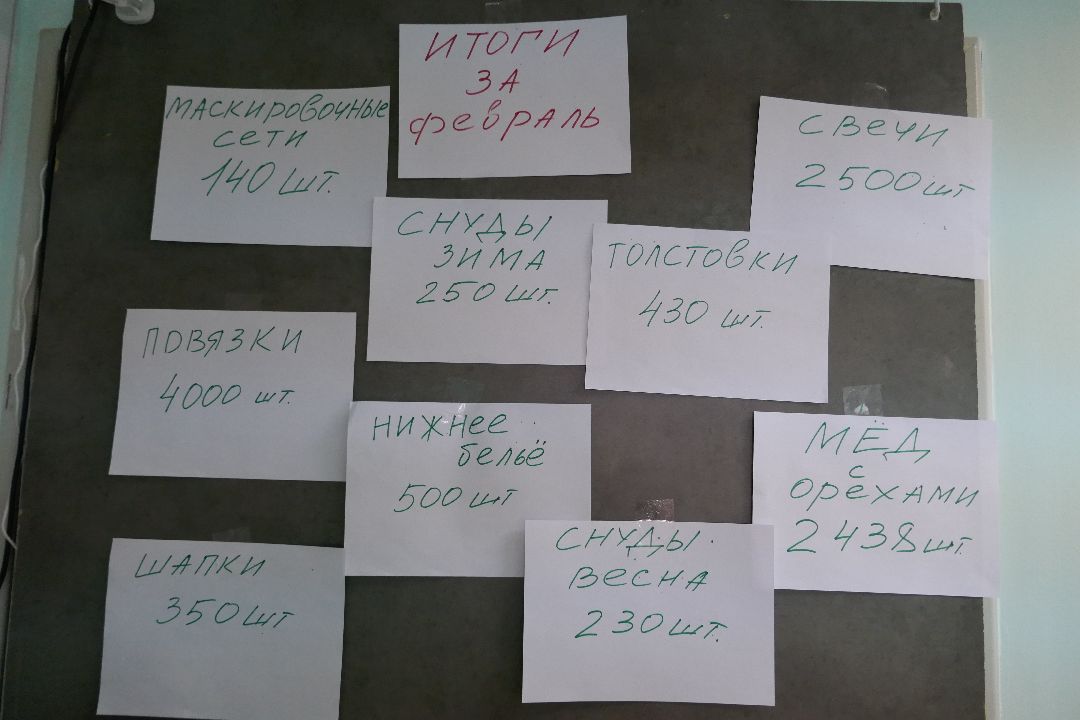 ИТОГИ
ЗА
февраль
МАСКИРОВОЧНЫЕ
СЕТИ
140 ШТ.
СВЕЧИ
2500 шт
СНУДЫ
ЗИМА
250 шт.
ТОЛСТОВКИ
430 шт.
ПОВЯЗКИ
4000 шт.
НИЖНЕЕ
бельё
500 шт
МЁД
С
ОРЕХАМИ
2438 шт.
ШАПКИ
350 шт
СНУДЫ
ВЕСНА
230 шт.